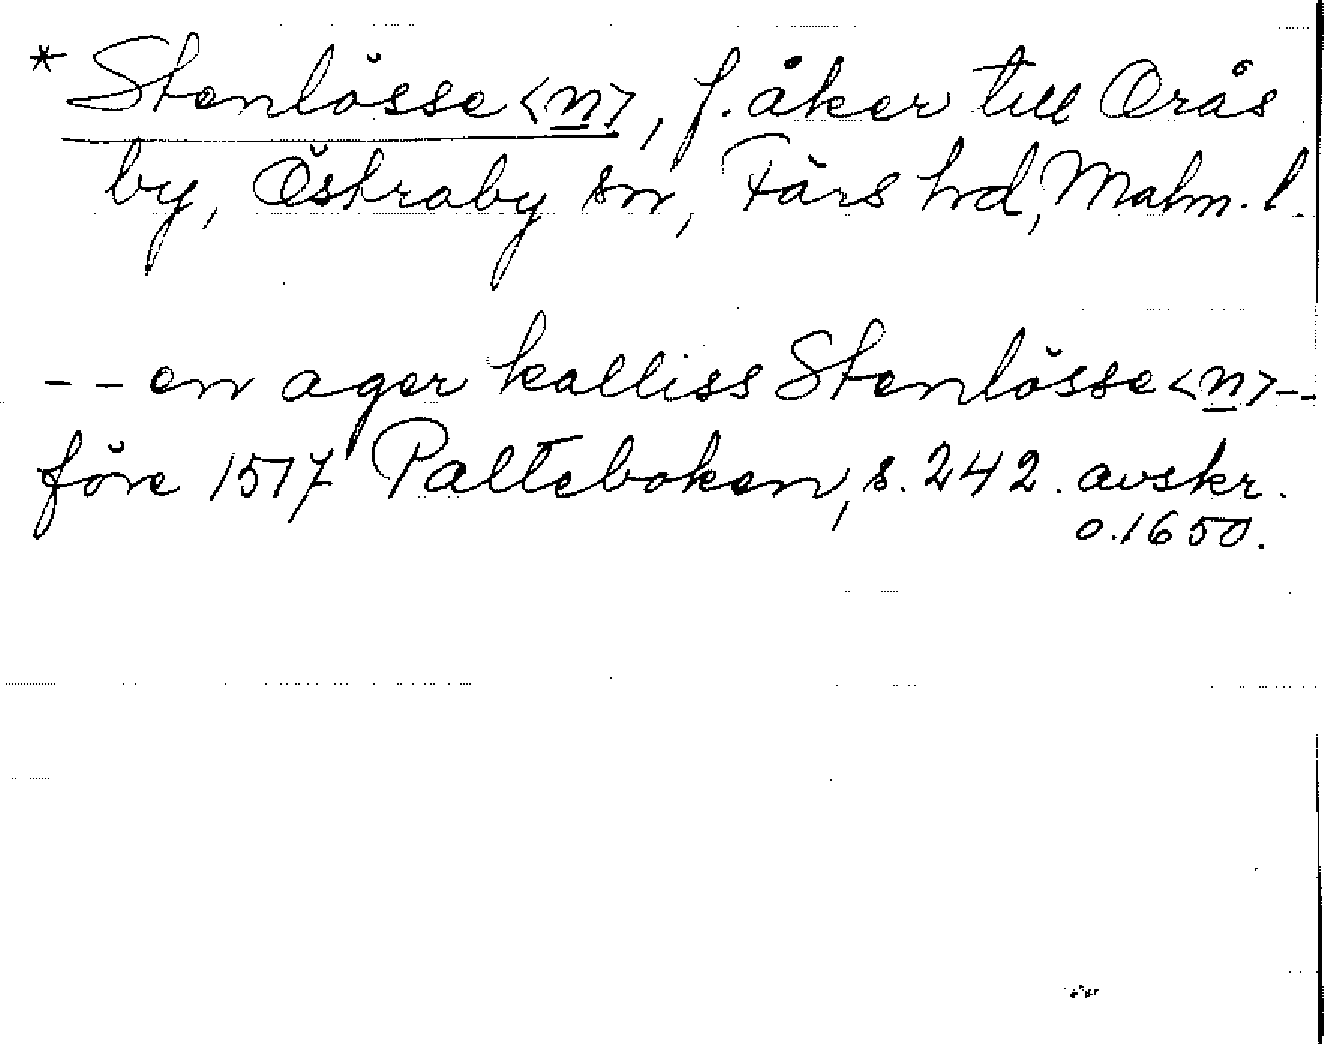 * Stenlösse<n>, f. åker till Orås
by, Östraby sn, Färs hd, Malm. l.
-- en ager kalliss Stenlösse<n>--
före 1517 Palteboken, s. 242. avskr.
o. 1650.